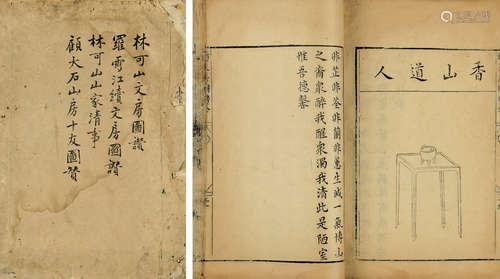 林可山文房圖讚
羅雪江續文房圖讚
林可山山家清事
顧大石山房十友圖贊
香山道人
非芷非荃非蘭非蕙生滅一氣博山
之齋衆醉我醒衆濁我清此是陋室
惟吾德馨